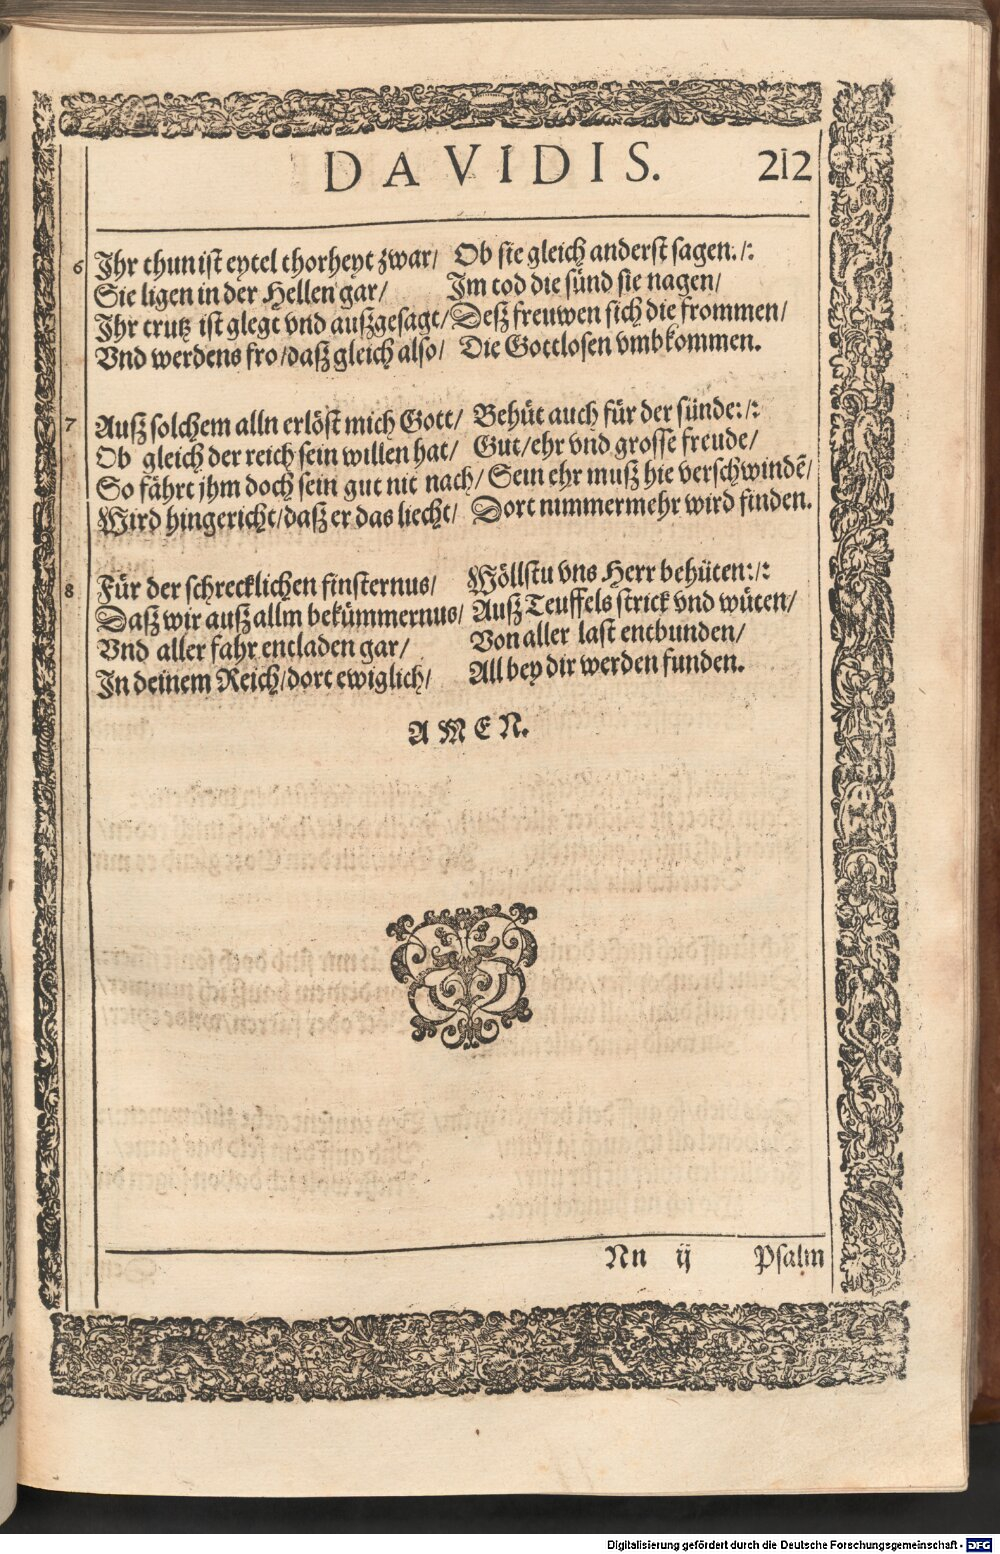 DAVIDIS. 212
6 Ihr thun ist eytel thorheyt zwar/ Ob sie gleich anderst sagen:/:
Sie ligen in der Hellen gar/ Im tod die sünd sie nagen/
Ihr trutz ist glegt vnd außgesagt/ Deß freuwen sich die frommen/
Vnd werdens fro/ daß gleich also/ Die Gottlosen vmbkommen.
7 Auß solchem alln erlöst mich Gott/ Behüt auch für der sünde:/:
Ob gleich der reich sein willen hat/ Gut/ ehr vnd grosse freude/
So fährt jhm doch sein gut nit nach/ Sein ehr muß hie verschwindē/
Wird hingericht/ daß er das liecht/ Dort nimmermehr wird finden.
8 Für der schrecklichen finsternus/ Wöllstu vns Herr behüten:/:
Daß wir auß allm bekümmernus/ Auß Teuffels strick vnd wüten/
Vnd aller fahr entladen gar/ Von aller last entbunden/
In deinem Reich/ dort ewiglich/ All bey dir werden funden.
AMEN.
Nn ij Psalm
Digitalisierung gefördert durch die Deutsche Forschungsgemeinschaft - DFG